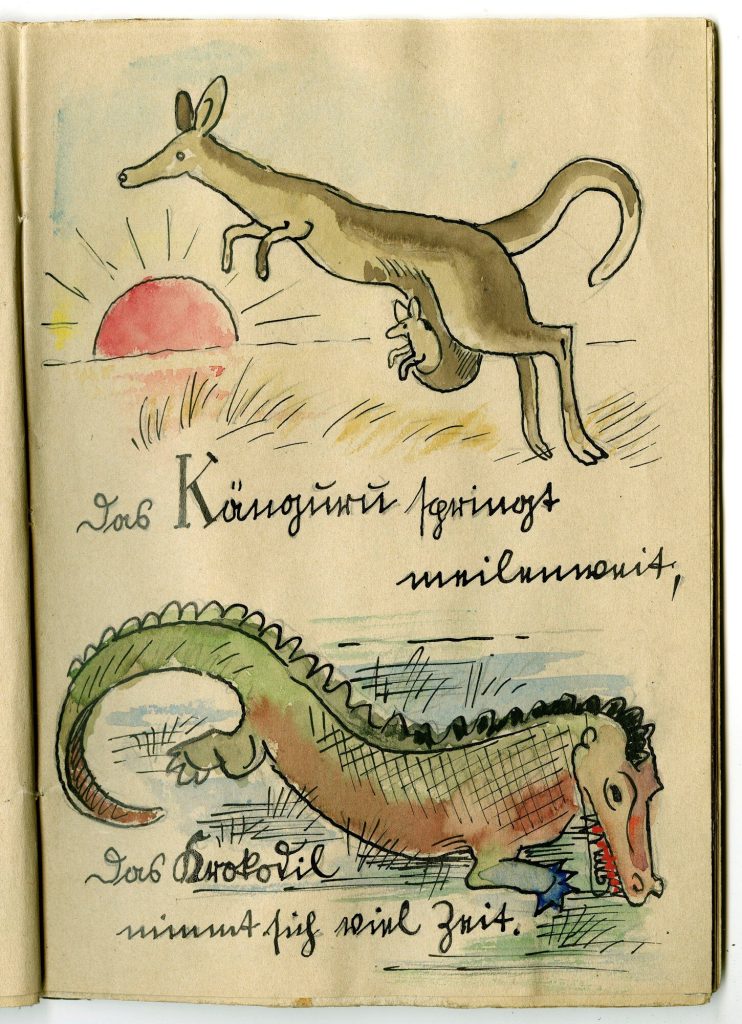 Das Känguru springt
meilenweit,
Das Krokodil
nimmt sich viel Zeit.